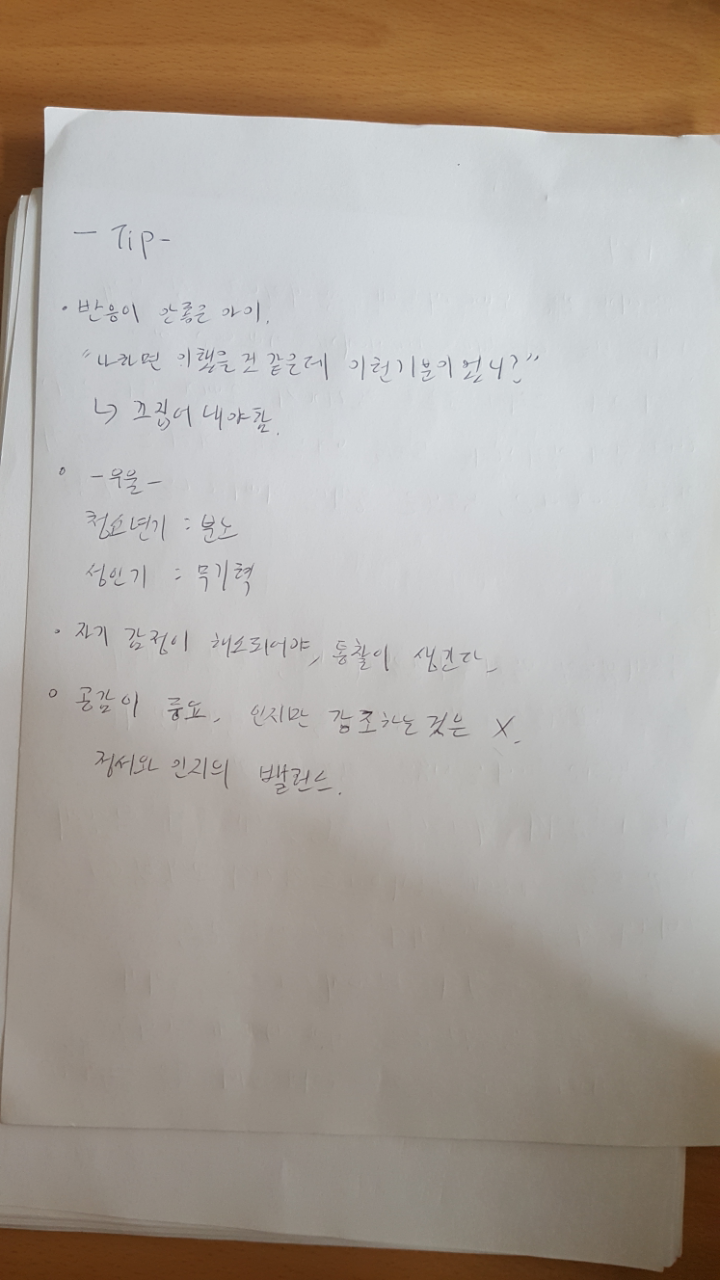 - Tip -
· 반응이 안좋은 아이.
"나라면 이랬을 것 같은데 이런기분이 없니?"
↳ 끄집어 내야함.
° -우울-
청소년기 : 분노
성인기 : 무기력
· 자기 감정이 해소되어야, 통찰이 생긴다.
° 공감이 중요, 인지만 강조하는 것은 X.
정서와 인지의 밸런스.